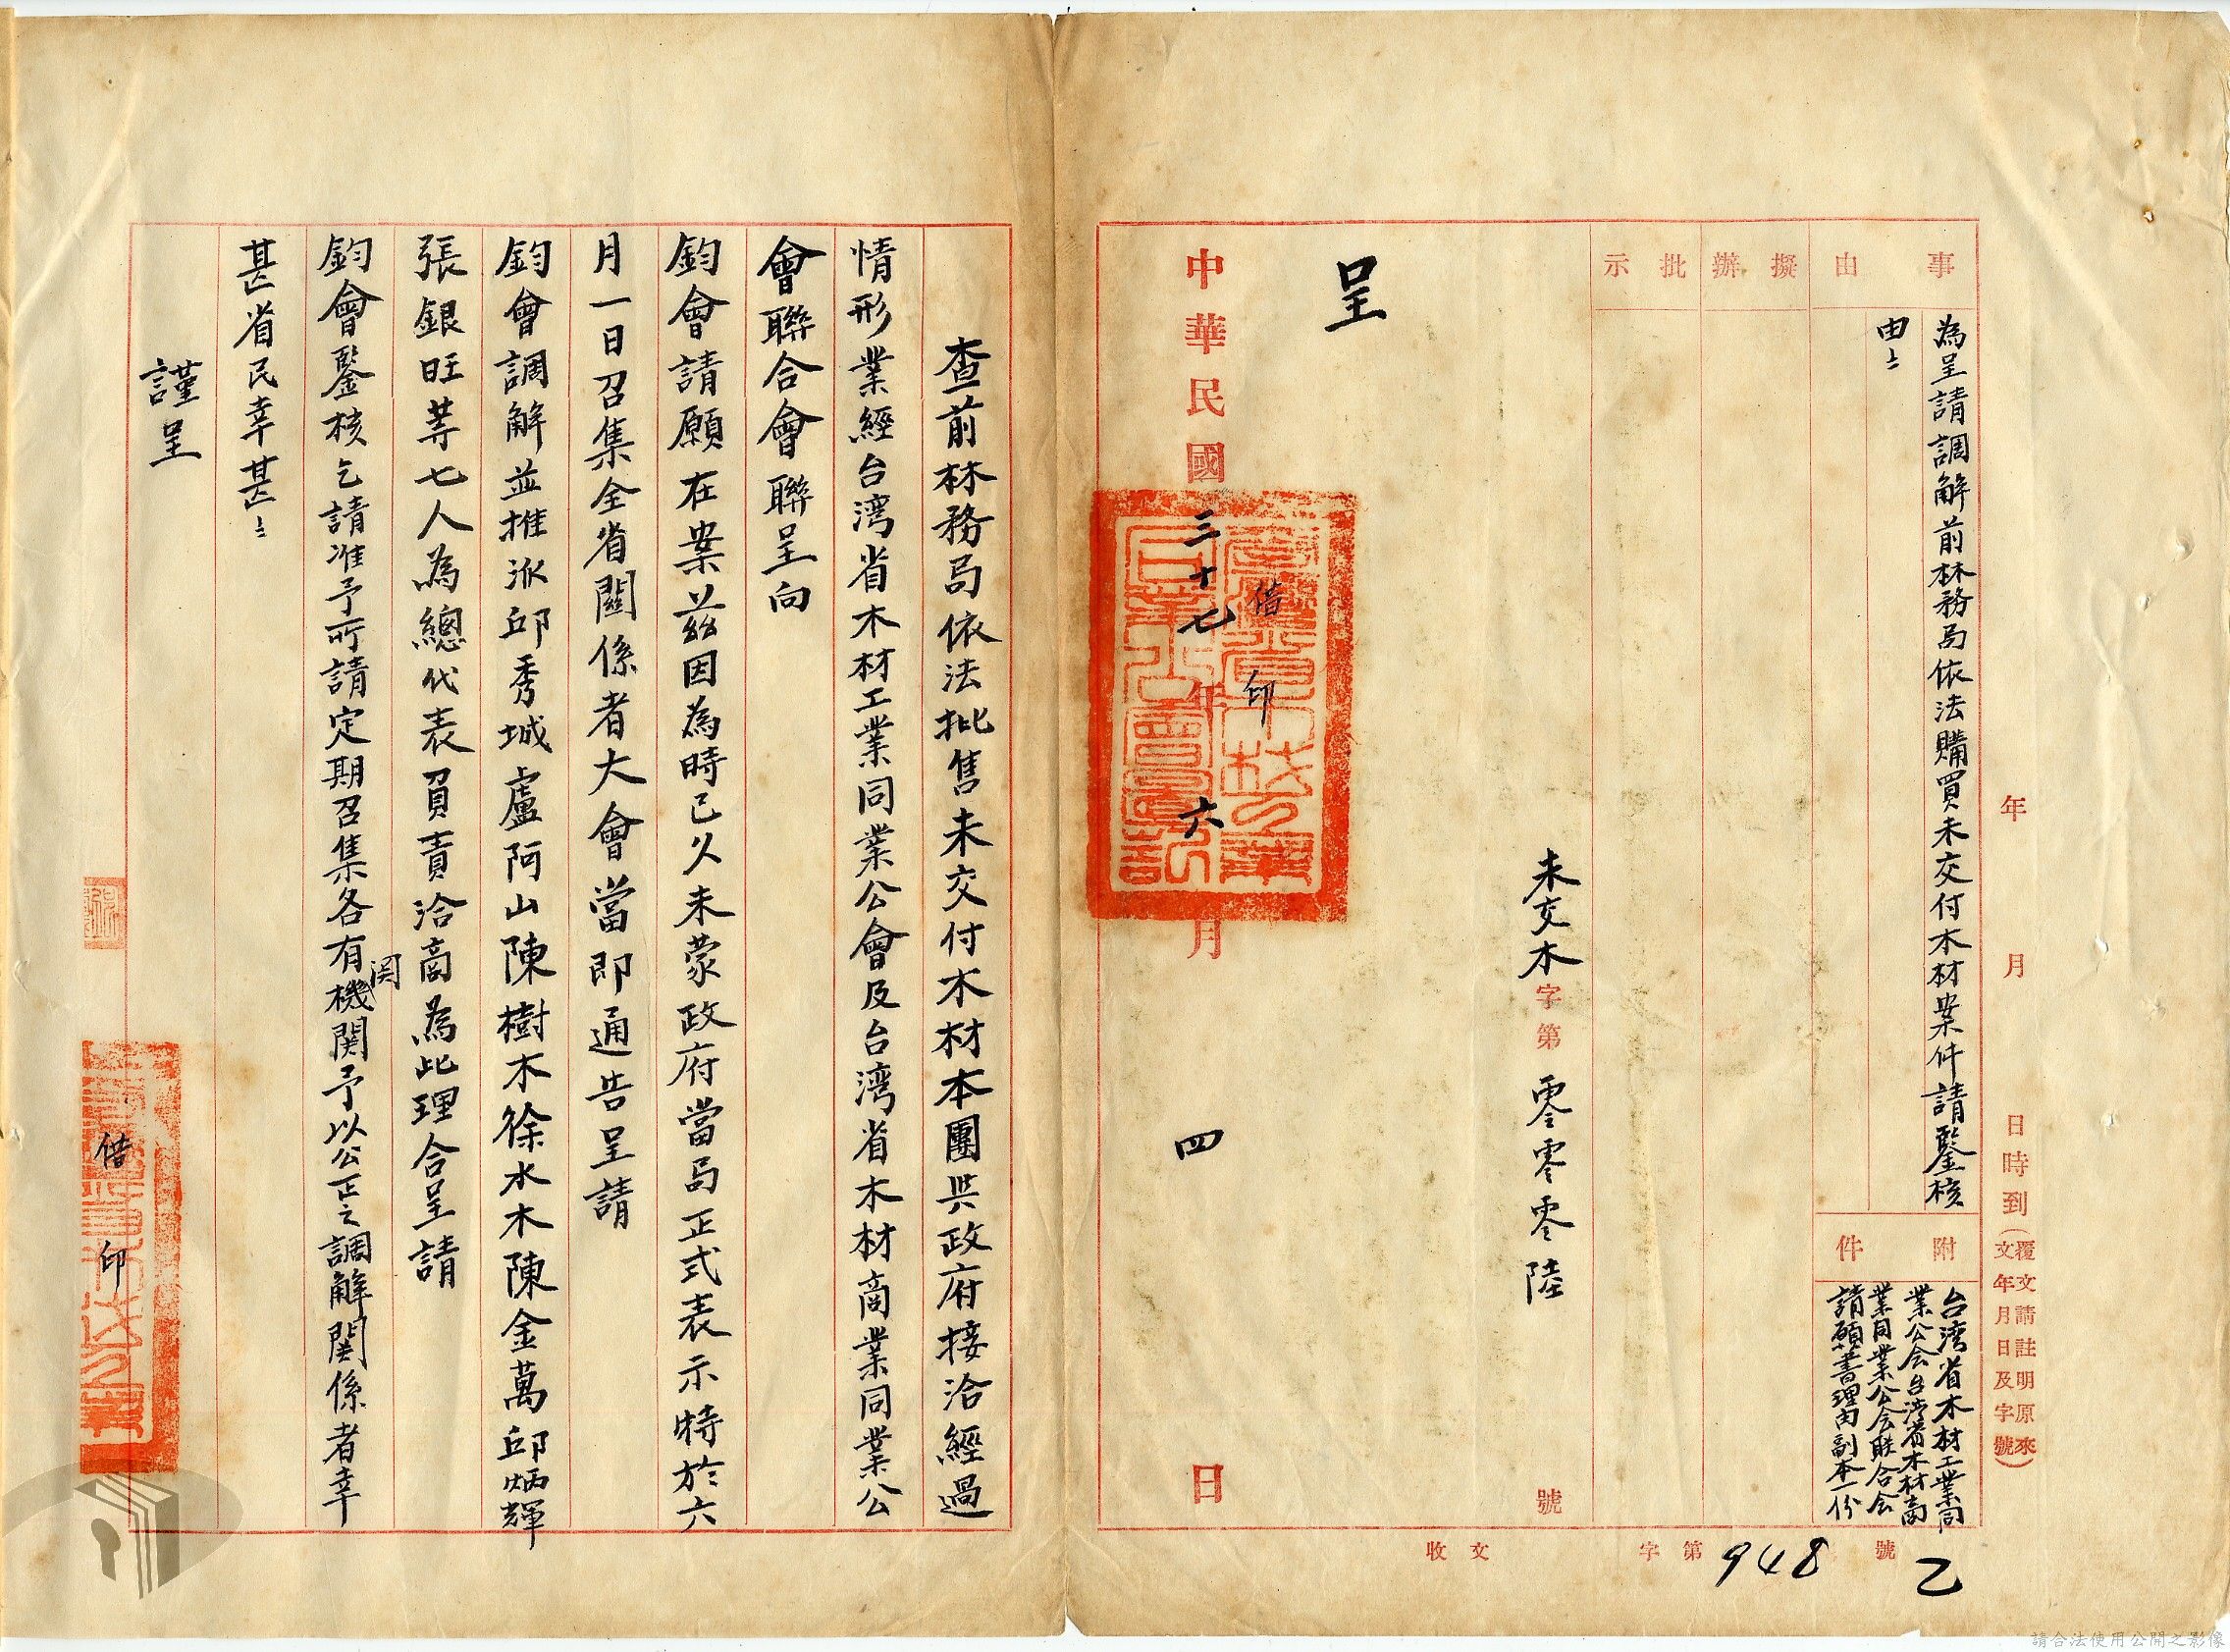 年　月　日時到（覆文請註明原來文年月日及字號）
事由
為呈請調解前林務局依法購買未交付木材案件請鑒核
由〻
附件
台湾省木材工業同
業公会台湾省木材商
業同業公会联合会
請願書理由副本一份
擬辦
批示
未交木字第零零零陸號
呈
中華民國三十七年六月四日
借印
收文　字第948號
乙
查前林務局依法批售未交付木材本團與政府接洽經過
情形業經台湾省木材工業同業公會及台湾省木材商業同業公
會聯合會聯呈向
鈞會請願在案茲因為時已久未蒙政府當局正式表示特於六
月一日召集全省關係者大會當即通告呈請
鈞會調解並推派邱秀城盧阿山陳樹木徐水木陳金萬邱炳輝
張銀旺等七人為總代表負責洽商為此理合呈請
鈞會鑒核乞請准予所請定期召集各有関機関予以公正之調解関係者幸
甚省民幸甚〻
謹呈
借印
請合法使用公開之影像